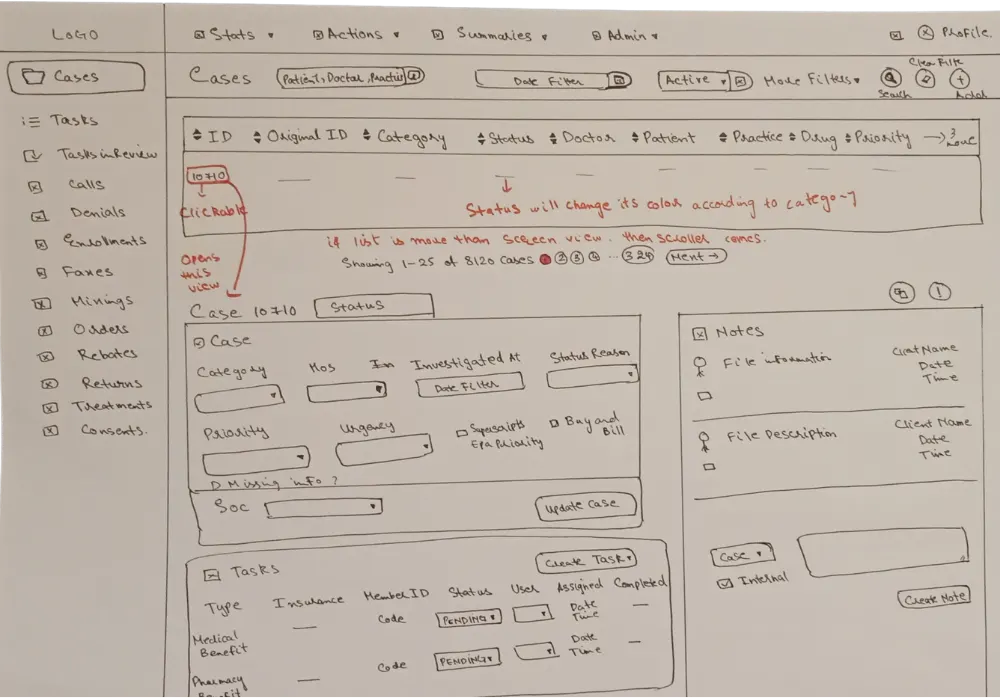 LOGO
Stats
Actions
Summaries
Admin
Profile.
Cases
Cases
Patient, Doctor, Practice
Date Filter
Active
More Filters
Clear Filter
Search
Tasks
Tasks in Review
Calls
Denials
Enrolments
Faxes
Minings
Orders
Rebates
Returns
Treatments
Consents.
ID
Original ID
Category
Status
Doctor
Patient
Practice
Drug
Priority
3
10710
Clickable
Status will change its color according to
if list is more than screen view. then scroller comes.
Showing 1-25 of 8120 Cases
2 3 4 ... 324 Next →
Opens
this
view
Case 10710
Status
Case
Category
Investigated At
Status Reason
Date Filter
Priority
Urgency
Superscripts
Epa Priority
Buy and
Bill
Missing info ?
Soc
Update Case
Notes
File information
Client Name
Date
Time
File Description
Client Name
Date
Time
Case
Internal
Create Note
Tasks
Create Task
Type
Insurance
Member ID
Status
User
Assigned
Completed
Medical
Benefit
Code
PENDING
Date
Time
Pharmacy
Benefit
Code
PENDING
Date
Time